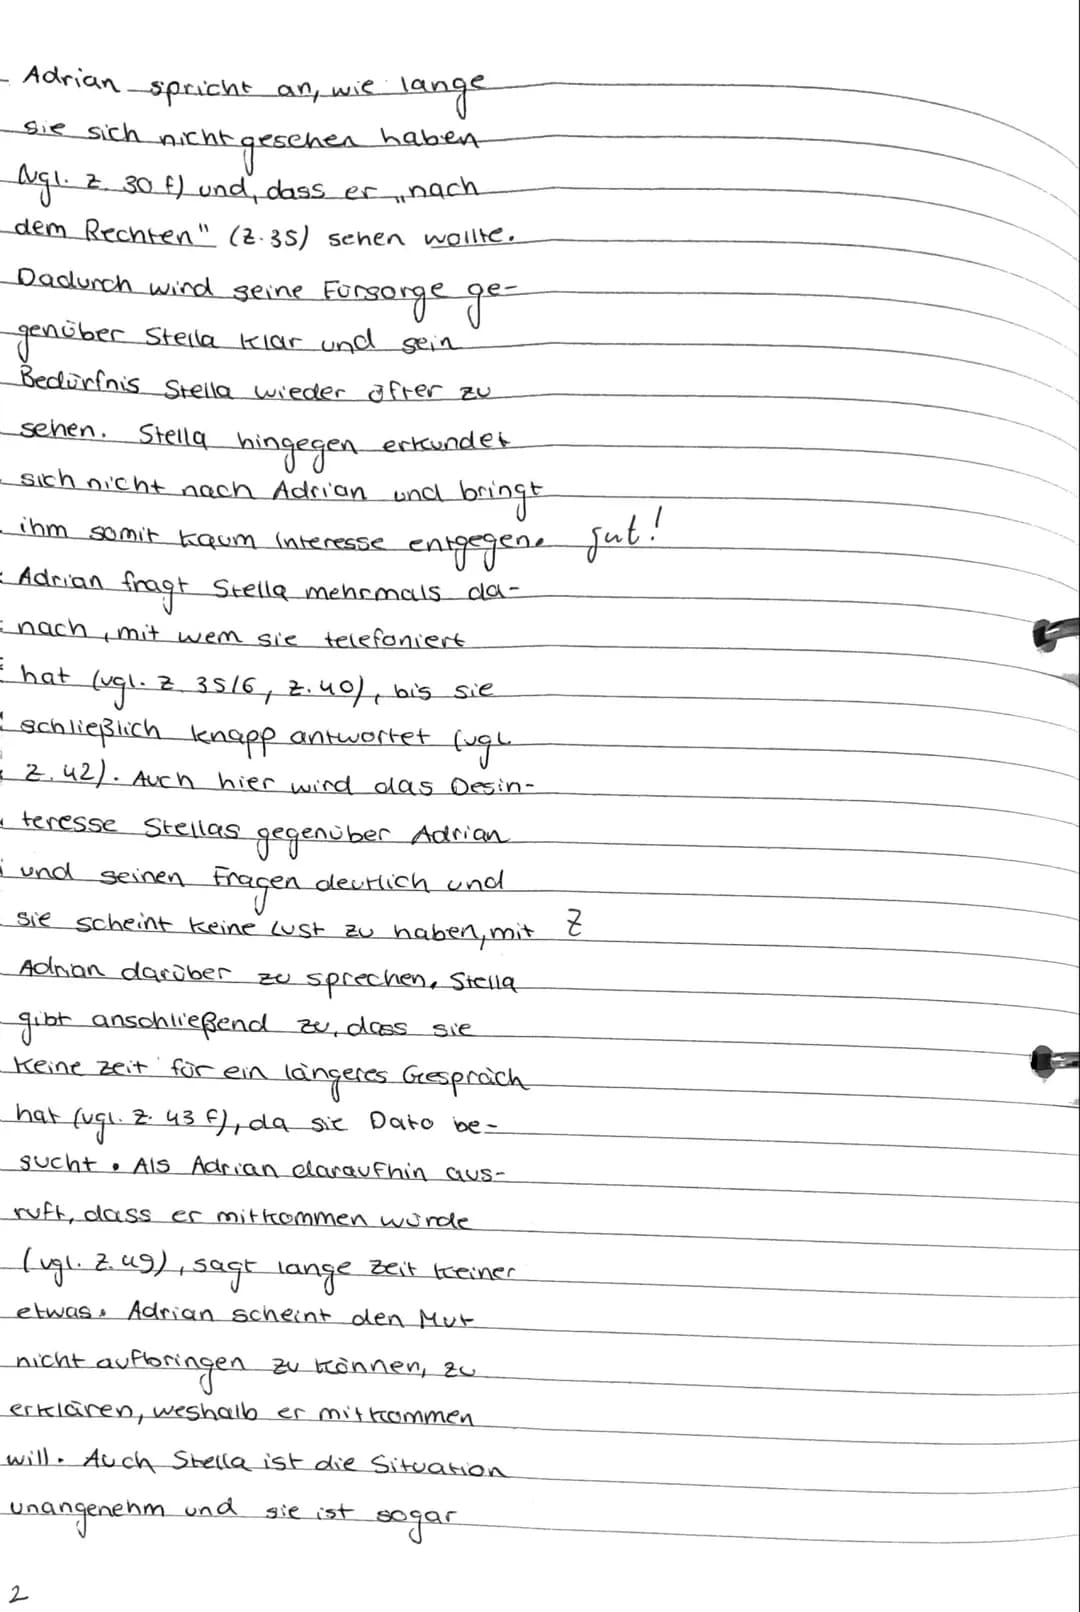 Adrian spricht an, wie lange
sie sich nicht gesehen haben
(vgl. Z. 30 f) und, dass er „nach
dem Rechten" (Z. 35) sehen wollte.
Dadurch wird seine Fürsorge ge-
genüber Stella klar und sein
Bedürfnis Stella wieder öfter zu
sehen. Stella hingegen erkundet
sich nicht nach Adrian und bringt
ihm somit kaum Interesse entgegen. gut!
Adrian fragt Stella mehrmals da-
nach, mit wem sie telefoniert
hat (vgl. Z. 35/6, Z. 40), bis sie
schließlich knapp antwortet (vgl.
Z. 42). Auch hier wird das Desin-
teresse Stellas gegenüber Adrian
und seinen Fragen deutlich und
sie scheint keine Lust zu haben, mit Z
Adrian darüber zu sprechen. Stella
gibt anschließend zu, dass sie
keine Zeit für ein längeres Gespräch
hat (vgl. Z. 43 f), da sie Dato be-
sucht. Als Adrian daraufhin aus-
ruft, dass er mitkommen würde
(vgl. Z. 49), sagt lange Zeit keiner
etwas. Adrian scheint den Mut
nicht aufbringen zu können, zu
erklären, weshalb er mitkommen
will. Auch Stella ist die Situation
unangenehm und sie ist sogar
2